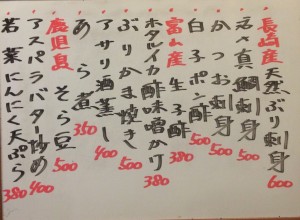 長崎産 天然ぶり刺身 600
活〆真鯛刺身 500
かつお刺身 500
白子ポン酢 500
富山産 生子酢 380
ホタルイカ酢味噌かけ 380
ぶりかま焼き 500
アサリ酒蒸し 400
あら煮 350
鹿児島 そら豆 500
アスパラバター炒め 400
若菜にんにく天ぷら 380